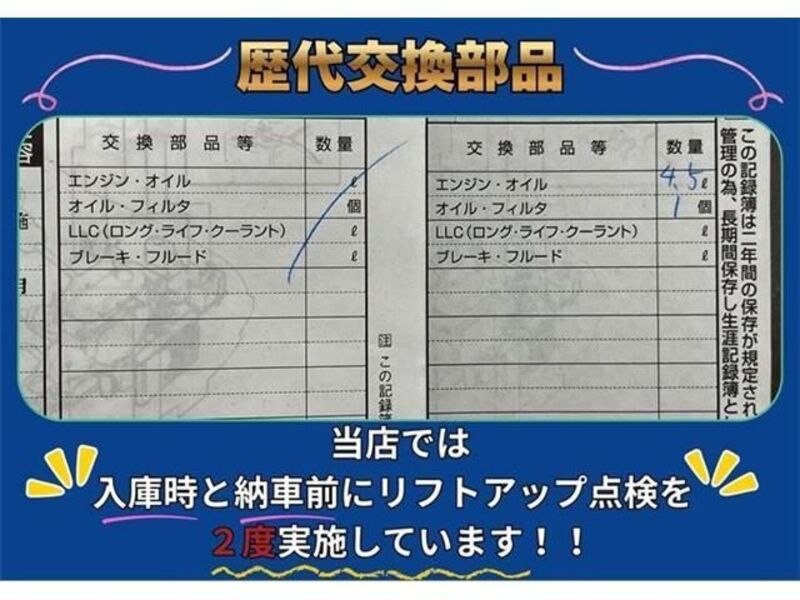 歴代交換部品
交換部品等 数量
エンジン・オイル ℓ
オイル・フィルタ 個
LLC(ロング・ライフ・クーラント) ℓ
ブレーキ・フルード ℓ
施
月
注 この記録簿
交換部品等 数量
エンジン・オイル 4.5 ℓ
オイル・フィルタ 1 個
LLC(ロング・ライフ・クーラント) ℓ
ブレーキ・フルード ℓ
この記録簿は二年間の保存が規定され
管理の為、長期間保存し生涯記録簿と
当店では
入庫時と納車前にリフトアップ点検を
2度実施しています!!